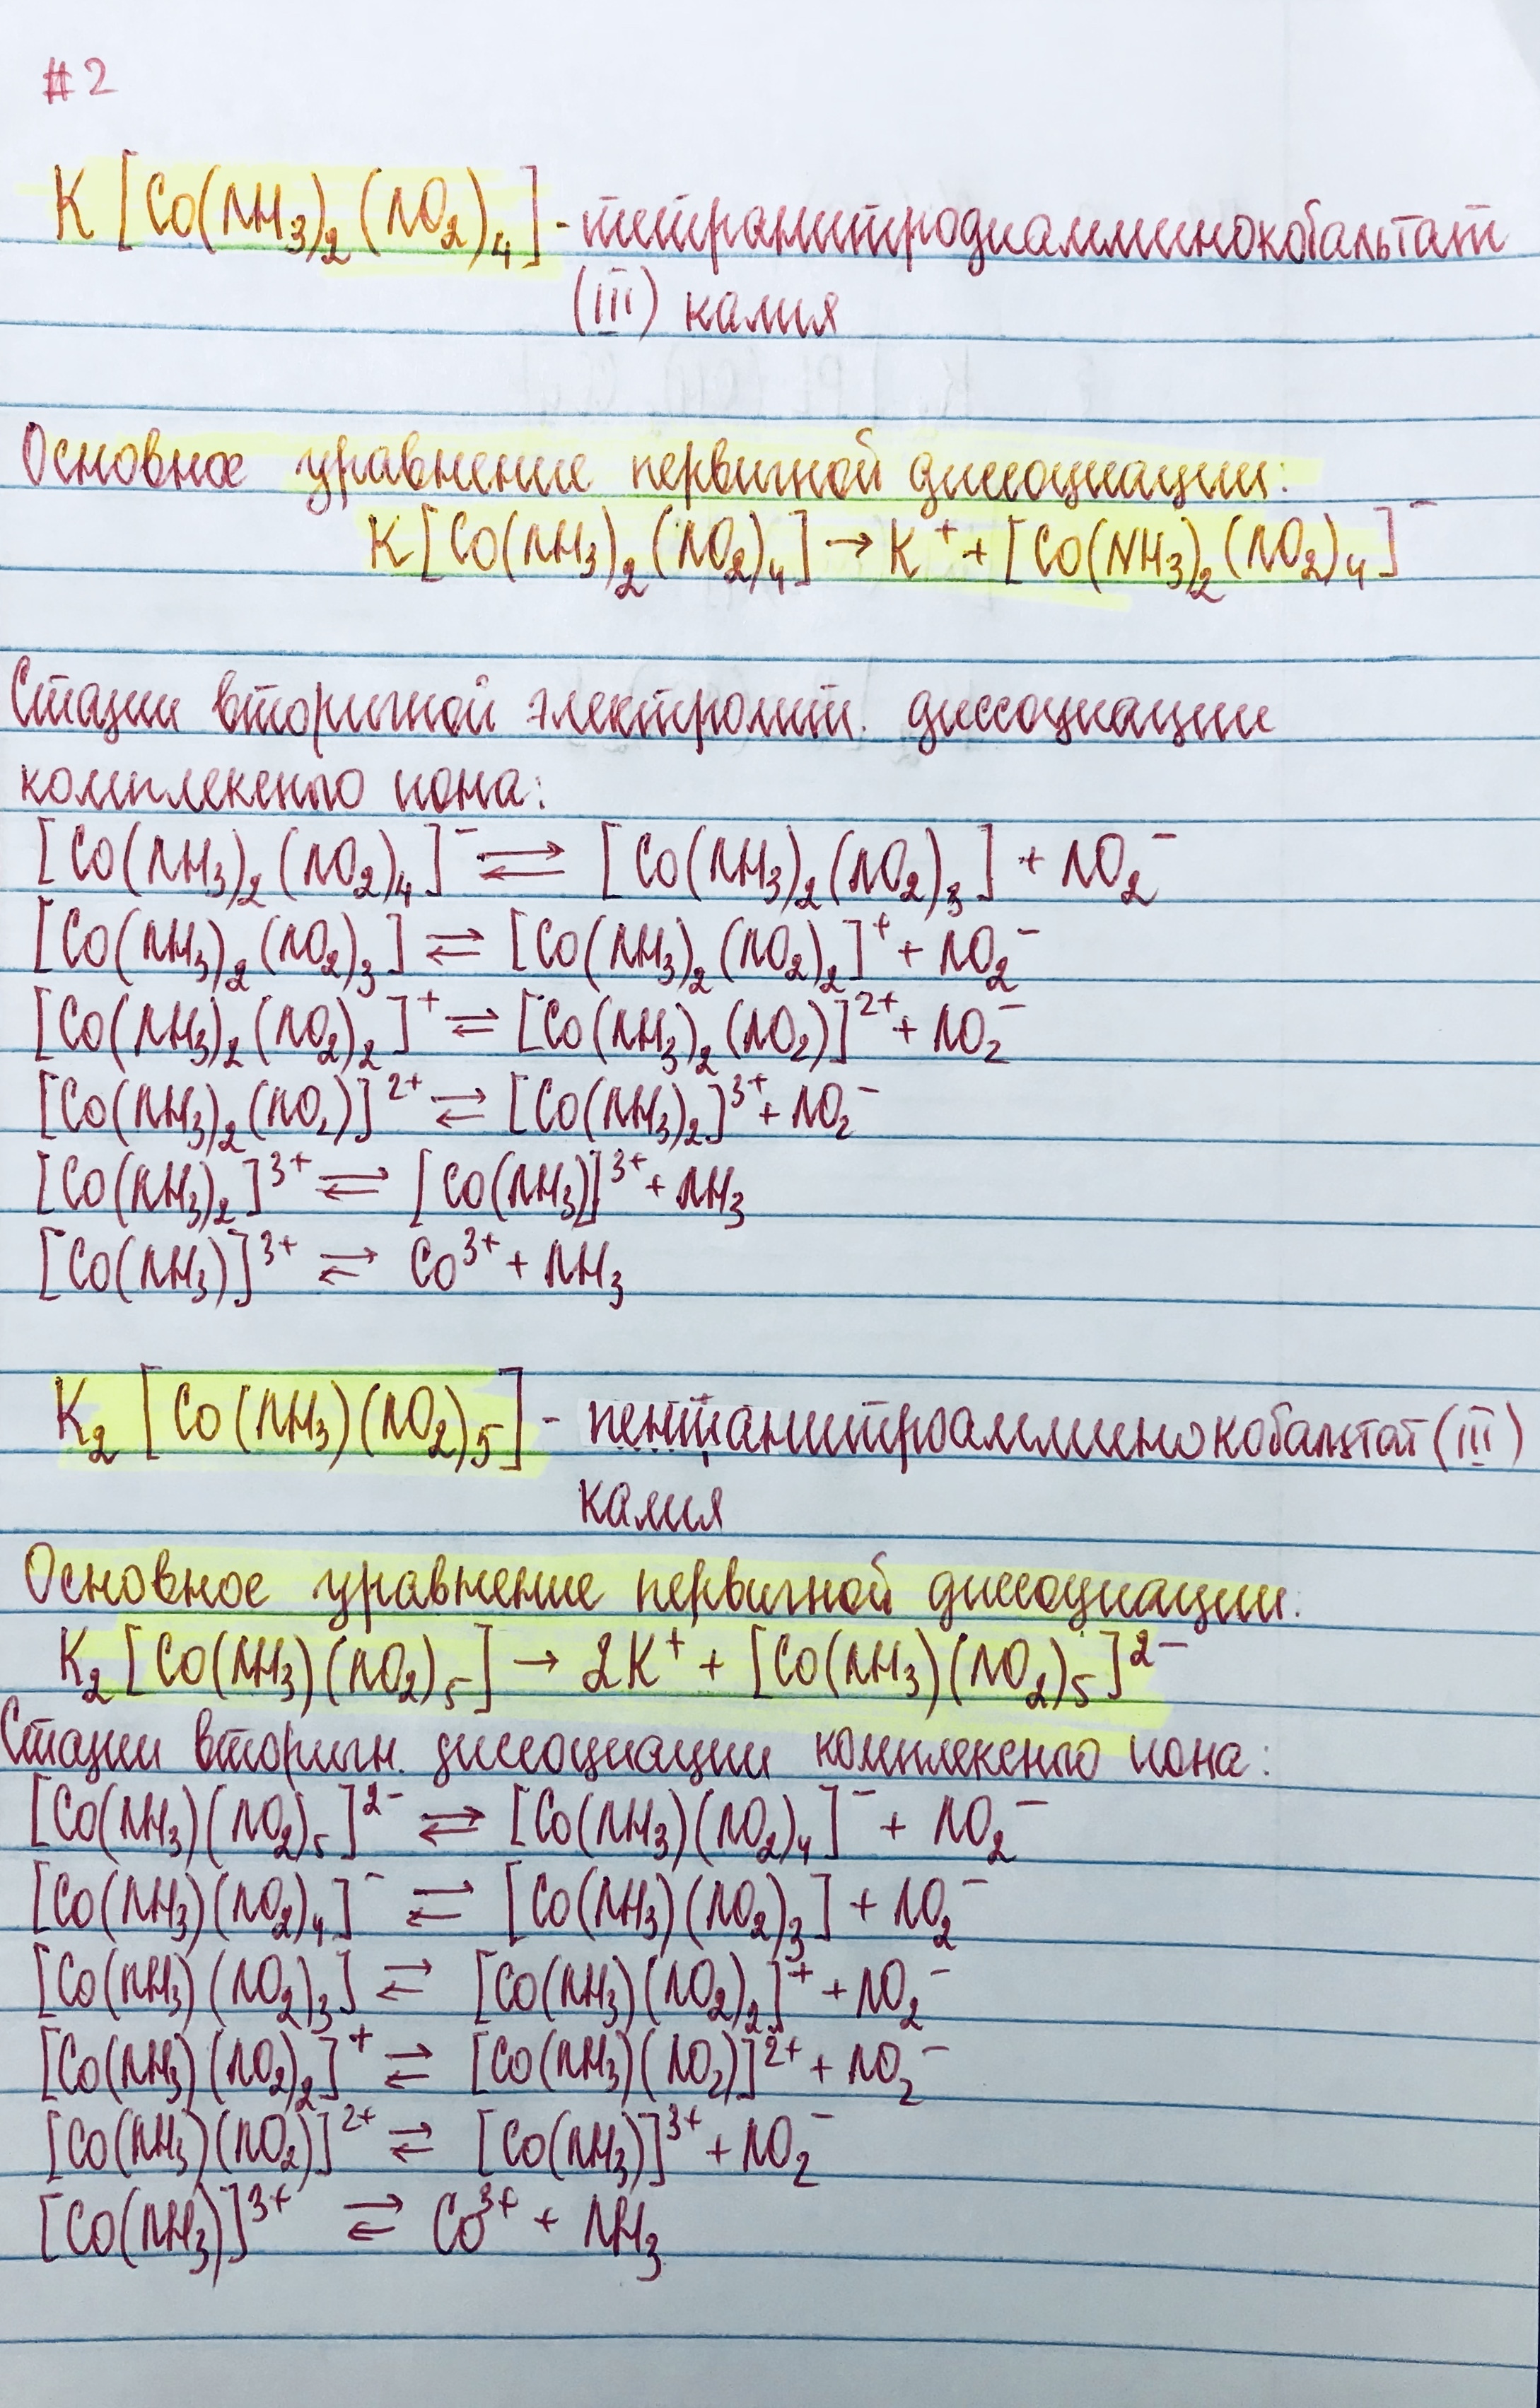 #2
K[Co(NH₃)₂(NO₂)₄] - тетранитродиамминокобальтат
(III) калия
Основное уравнение первичной диссоциации:
K[Co(NH₃)₂(NO₂)₄] → K⁺ + [Co(NH₃)₂(NO₂)₄]⁻
Стадии вторичной электролит. диссоциации
комплексного иона:
[Co(NH₃)₂(NO₂)₄]⁻ ⇄ [Co(NH₃)₂(NO₂)₃] + NO₂⁻
[Co(NH₃)₂(NO₂)₃] ⇄ [Co(NH₃)₂(NO₂)₂]⁺ + NO₂⁻
[Co(NH₃)₂(NO₂)₂]⁺ ⇄ [Co(NH₃)₂(NO₂)]²⁺ + NO₂⁻
[Co(NH₃)₂(NO₂)]²⁺ ⇄ [Co(NH₃)₂]³⁺ + NO₂⁻
[Co(NH₃)₂]³⁺ ⇄ [Co(NH₃)]³⁺ + NH₃
[Co(NH₃)]³⁺ ⇄ Co³⁺ + NH₃
K₂[Co(NH₃)(NO₂)₅] - пентанитроамминокобальтат (III)
калия
Основное уравнение первичной диссоциации:
K₂[Co(NH₃)(NO₂)₅] → 2K⁺ + [Co(NH₃)(NO₂)₅]²⁻
Стадии вторичн. диссоциации комплексного иона:
[Co(NH₃)(NO₂)₅]²⁻ ⇄ [Co(NH₃)(NO₂)₄]⁻ + NO₂⁻
[Co(NH₃)(NO₂)₄]⁻ ⇄ [Co(NH₃)(NO₂)₃] + NO₂⁻
[Co(NH₃)(NO₂)₃] ⇄ [Co(NH₃)(NO₂)₂]⁺ + NO₂⁻
[Co(NH₃)(NO₂)₂]⁺ ⇄ [Co(NH₃)(NO₂)]²⁺ + NO₂⁻
[Co(NH₃)(NO₂)]²⁺ ⇄ [Co(NH₃)]³⁺ + NO₂⁻
[Co(NH₃)]³⁺ ⇄ Co³⁺ + NH₃